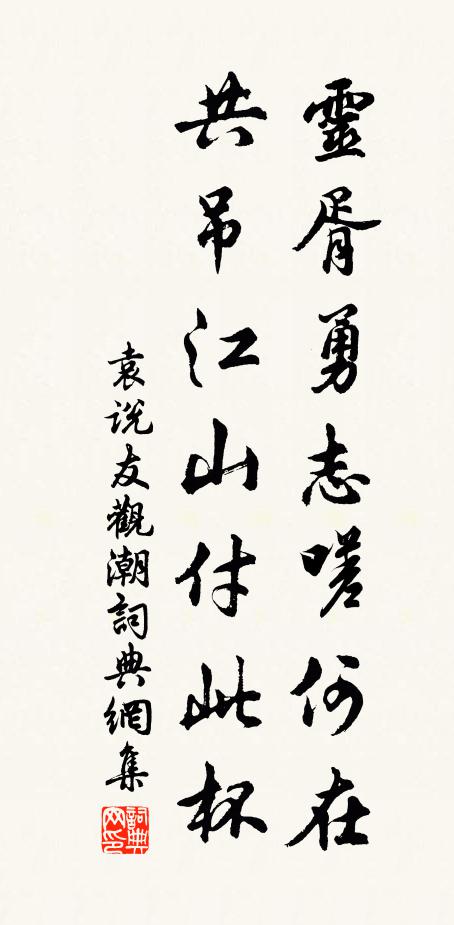 靈胥勇志嗟何在
共吊江山付此杯
袁说友觀潮詞典網集
詞典网印